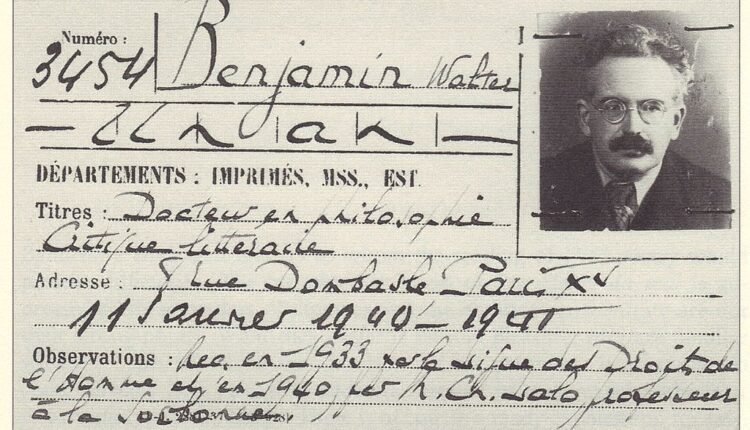 Numéro :
3454
Benjamin Walter
DÉPARTEMENTS : IMPRIMÉS, MSS., EST.
Titres : Docteur en philosophie
Critique littéraire
Adresse : rue Dombasle Paris XV
11 Janvier 1940 - 1941
Observations : Rec. en 1933 par la Ligue des Droits de
l'Homme et en 1940 par professeur
à la Sorbonne.